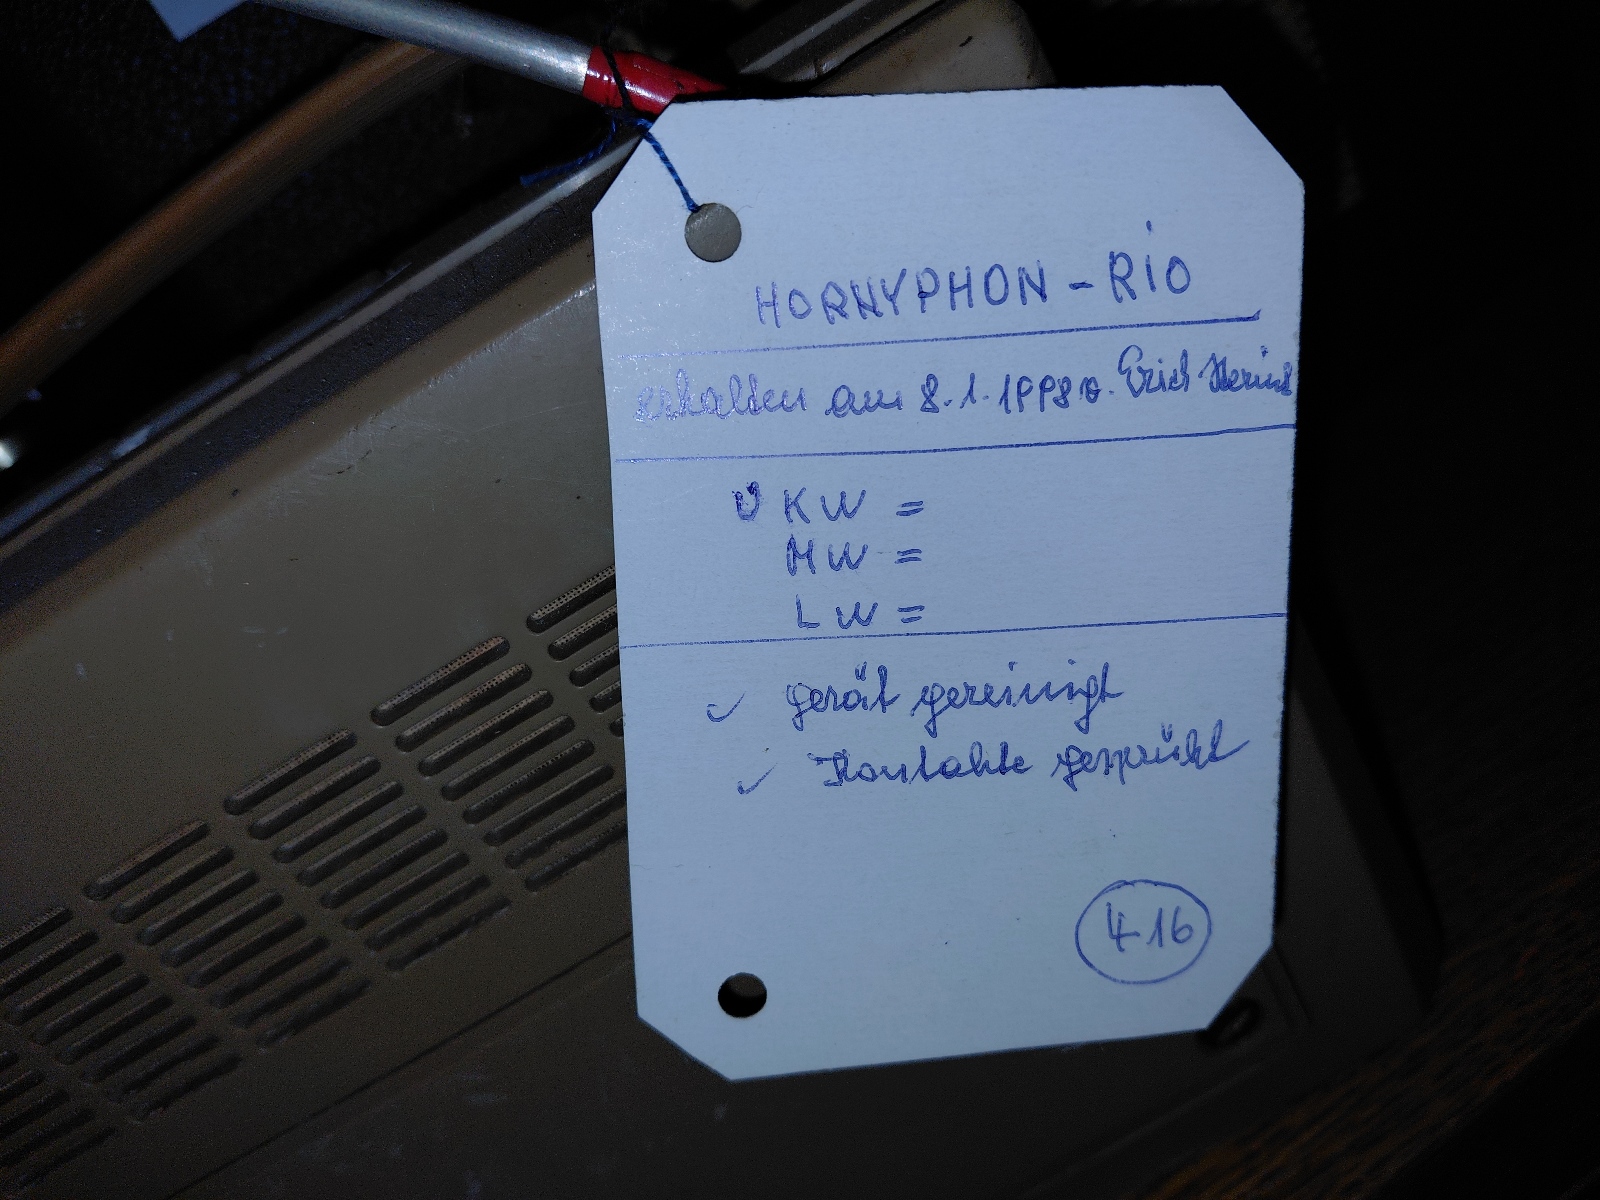 HORNYPHON - RIO
erhalten am 8.1.1998 v. Erich
UKW =
MW =
LW =
✓ gerät gereinigt
✓ Kontakte gesprüht
416